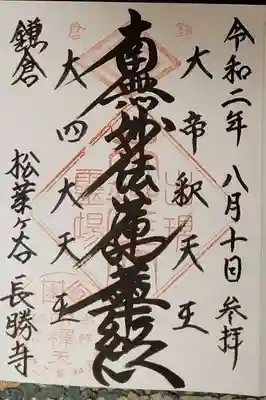 令和二年 八月十日 参拝
大帝釈天王
南無妙法蓮華経
大四大天王
鎌倉 松葉ヶ谷 長勝寺